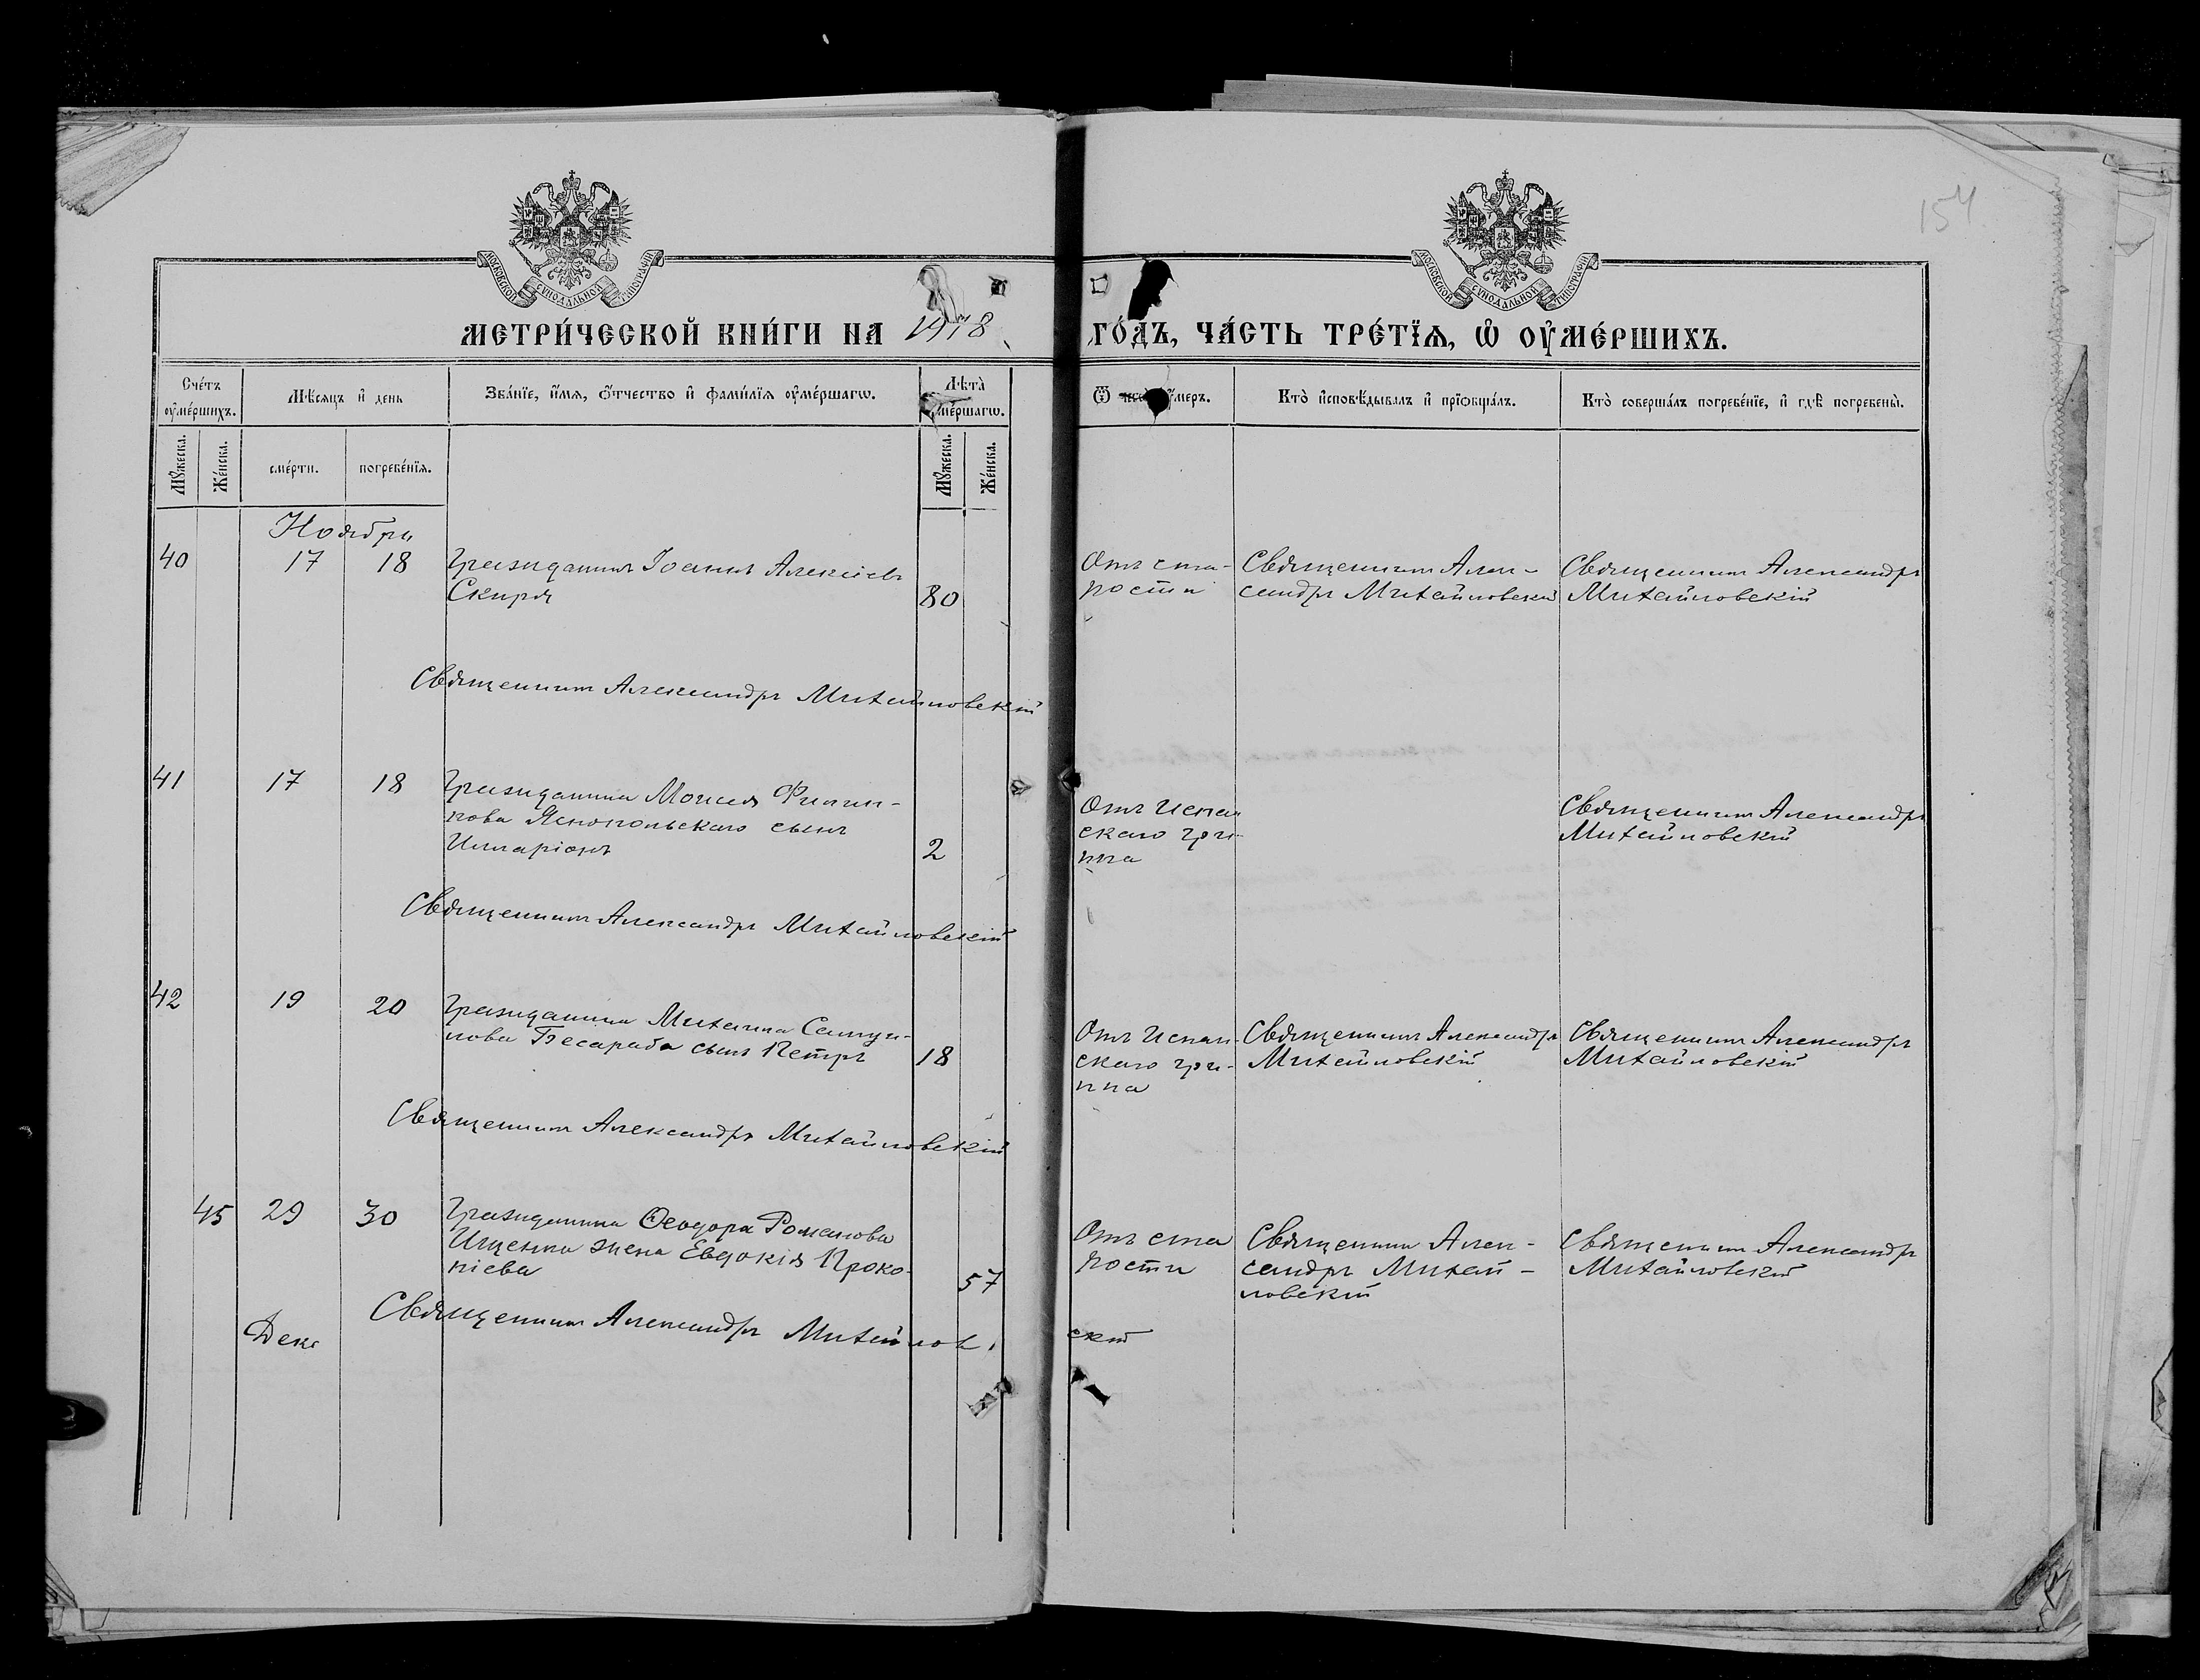 154
МОСКОВСКОЙ СУНОДАЛЬНОЙ ТИПОГРАФІИ
МОСКОВСКОЙ СУНОДАЛЬНОЙ ТИПОГРАФІИ
МЕТРИ́ЧЕСКОЙ КНИ́ГИ НА 1918 ГО́ДЪ, ЧА́СТЬ ТРЕ́ТЇѦ, Ѽ ОУ҆МЕ́РШИХЪ.
Сче́тъ оу҆ме́ршихъ.
Мѣ́сѧцъ и҆ день
Зва́нїе, и҆́мѧ, ѻ҆́тчество и҆ фами́лїѧ оу҆ме́ршагѡ.
Лѣ́та оу҆ме́ршагѡ.
Ѿ чегѡ̀ оу҆́меръ.
Кто̀ и҆сповѣ́дывалъ и҆ прїѡбща́лъ.
Кто̀ соверша́лъ погребе́нїе, и҆ гдѣ̀ погребены̀.
Мꙋ́жеска.
Же́нска.
сме́рти.
погребе́нїѧ.
Мꙋ́жеска.
Же́нска.
Ноября
40 17 18 Гражданинъ Іоаннъ Алексіевъ
Скиря 80
Отъ ста-
рости
Священникъ Алек-
сандръ Михайловскій
Священникъ Александръ
Михайловскій
Священникъ Александръ Михайловскій
41 17 18 Гражданина Моисея Филип-
пова Яснопольскаго сынъ
Илларіонъ 2
Отъ Испан
скаго гри-
ппа
Священникъ Александръ
Михайловскій
Священникъ Александръ Михайловскій
42 19 20 Гражданина Михаила Самуи-
лова Бесараба сынъ Петръ 18
Отъ Испан-
скаго гри-
ппа
Священникъ Александръ
Михайловскій
Священникъ Александръ
Михайловскій
Священникъ Александръ Михайловскій
45 29 30 Гражданина Ѳеодора Романова
Ищенка жена Евдокія Проко-
піева 57
Отъ ста
рости
Священникъ Алек-
сандръ Михай-
ловскій
Священникъ Александръ
Михайловскій
Священникъ Александръ Михайловскій
Дека